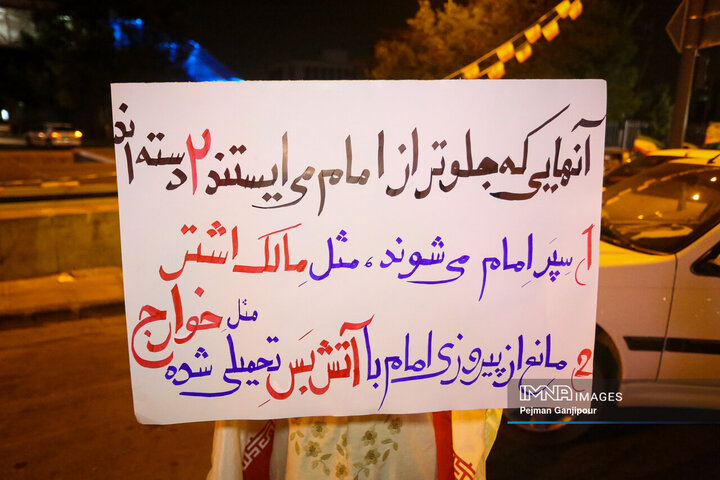 آنهایی که جلوتر از امام می ایستند ۲ دسته اند
۱) سپَرِ امام می‌شوند، مثلِ مالک اشتر
2) مانع از پیروزی امام با آتش بَس تحمیلی شده مثل خوارج
IMNA IMAGES
Pejman Ganjipour